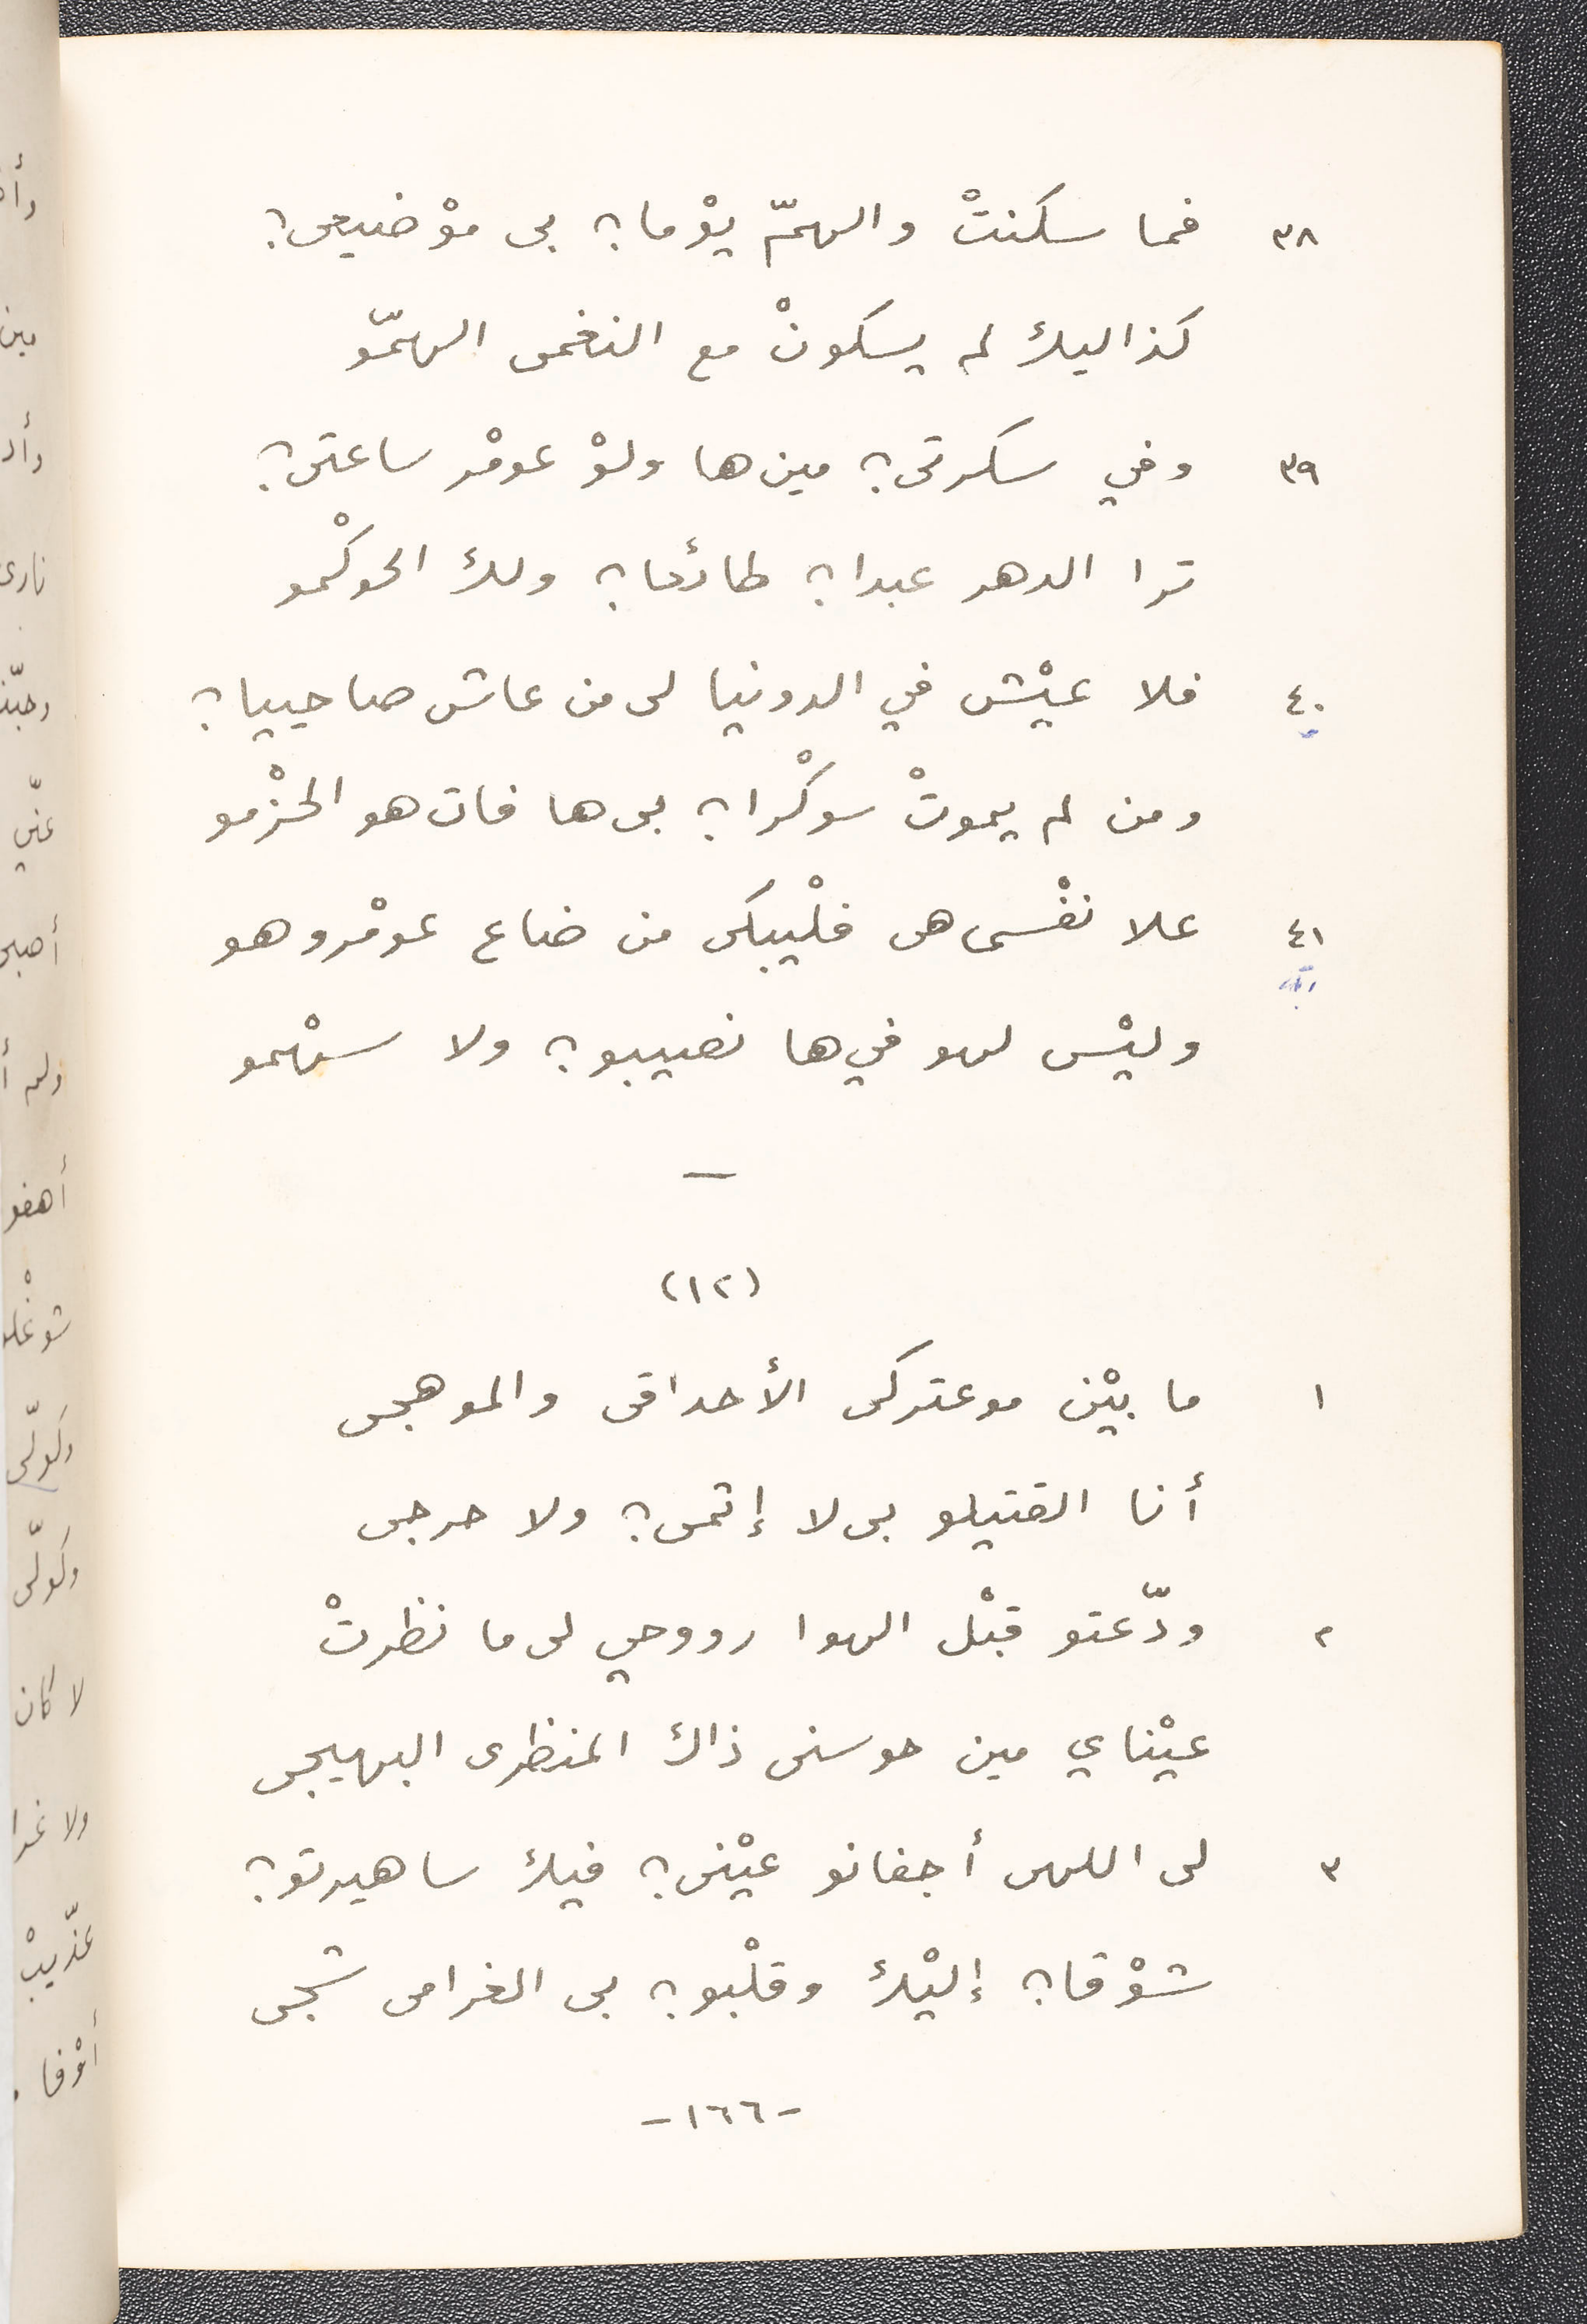 ٣٨ فما سكنتْ والهمّ يوْما؟ بى موْضيعى؟
كذاليك لم يسكونْ مع النغمى الهمّو
٣٩ وفي سكرتى؟ مين ها ولوْ عومْر ساعتى؟
ترا الدهر عبدا؟ طائعا؟ ولك الحوكْمو
٤٠ فلا عيْش في الدونيا لى من عاش صاحييا؟
ومن لم يموتْ سوكْرا؟ بى ها فات هو الحزْمو
٤١ علا نفْسى هى فلْيبكى من ضاع عومْرو هو
وليْس لهو في ها نصيبو؟ ولا سهْمو
—
(١٢)
١ ما بيْن موعتركى الأحداقى والموهجى
أنا القتيلو بى لا إثمى؟ ولا حرجى
٢ ودّعتو قبْل الهوا رووحي لى ما نظرتْ
عيْناي مين حوسنى ذاك المنظرى البهيجى
٣ لى اللهى أجفانو عيْنى؟ فيك ساهيرتو؟
شوْقا؟ إليْك وقلْبو؟ بى الغرامى شجى
-١٦٦-